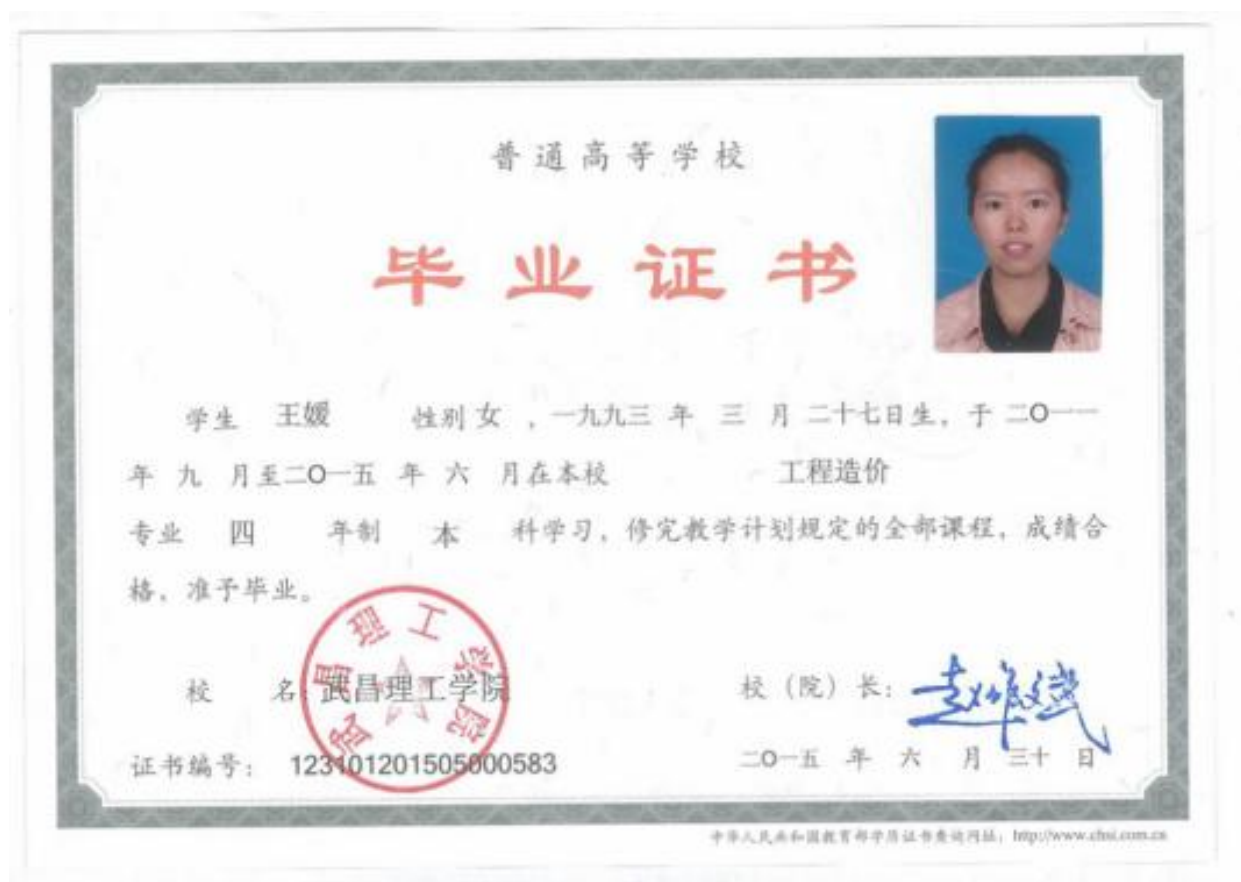 普通高等学校
毕业证书
学生 王媛 性别 女 ，一九九三 年 三 月 二十七日生，于 二〇一一
年 九 月至二〇一五 年 六 月在本校 工程造价
专业 四 年制 本 科学习，修完教学计划规定的全部课程，成绩合
格，准予毕业。
武昌理工学院
校 名：武昌理工学院
校（院）长：
证书编号： 123101201505000583
二〇一五 年 六 月 三十 日
中华人民共和国教育部学历证书查询网址：http://www.chsi.com.cn